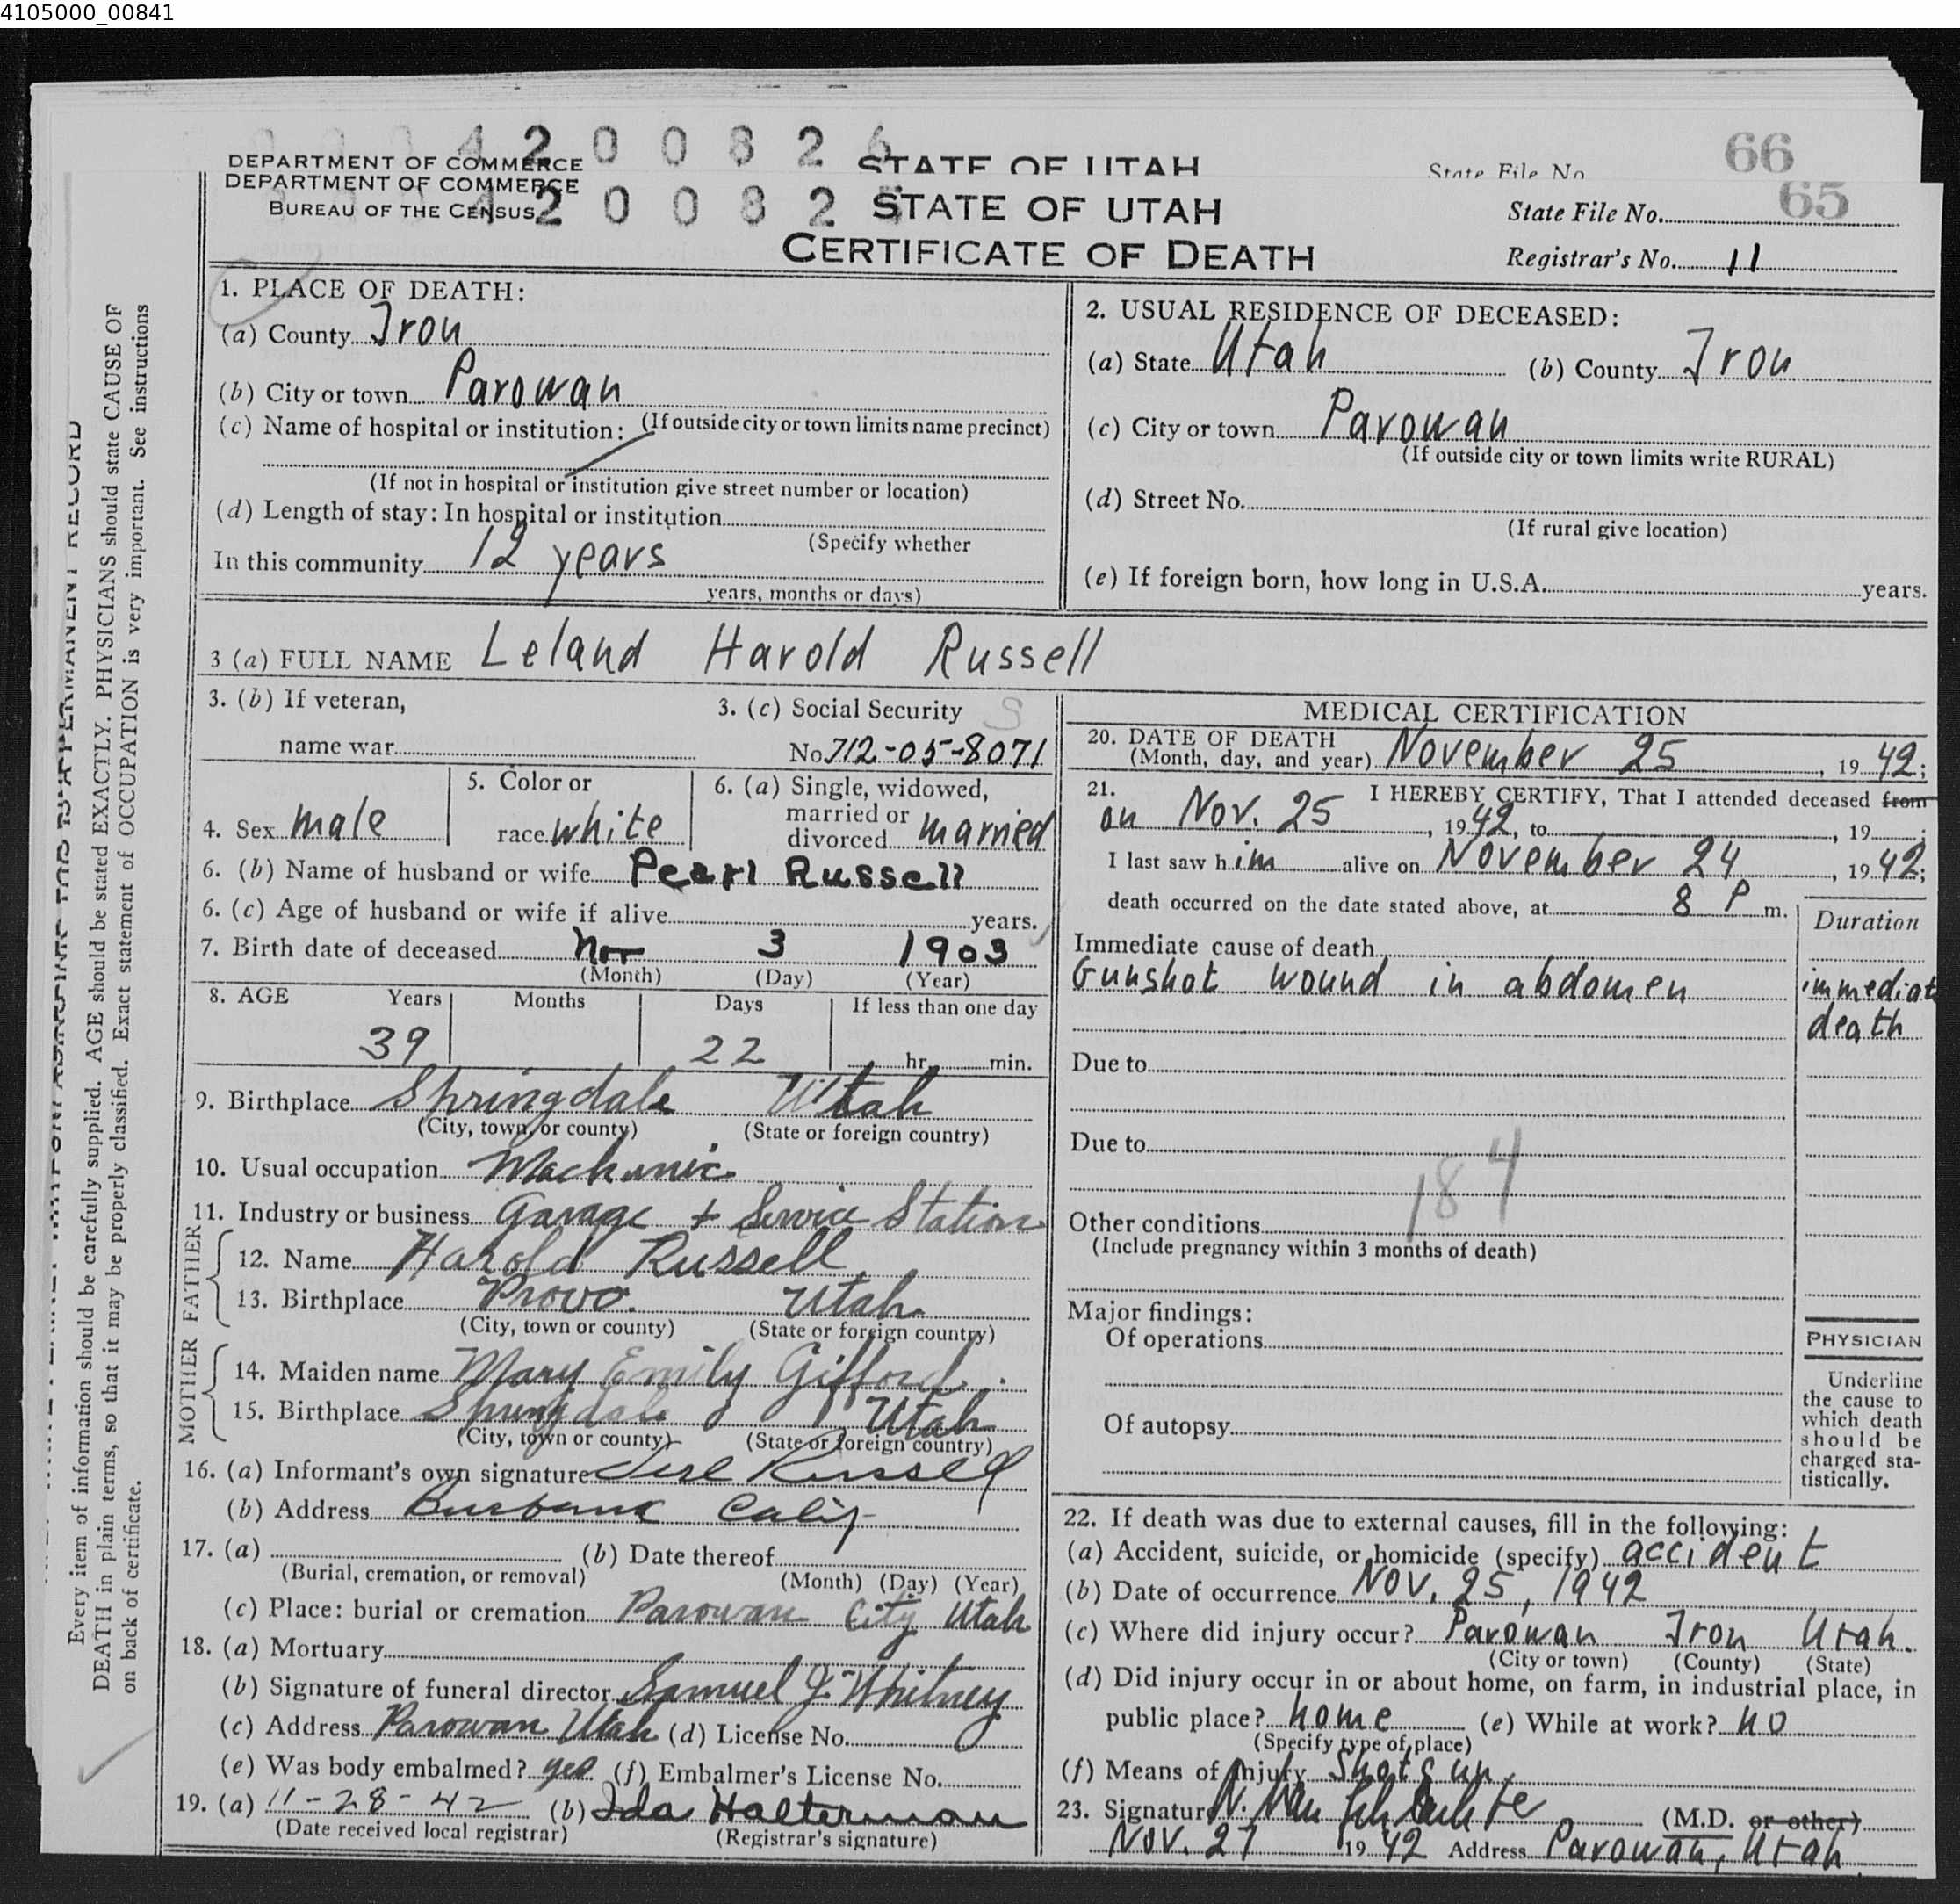 4105000_00841
4 2 0 0 8 2 6
66
DEPARTMENT OF COMMERCE STATE OF UTAH State File No.
DEPARTMENT OF COMMERCE
BUREAU OF THE CENSUS 4 2 0 0 8 2 5 STATE OF UTAH State File No. 65
CERTIFICATE OF DEATH Registrar's No. 11
1. PLACE OF DEATH:
(a) County Iron
(b) City or town Parowan
(If outside city or town limits name precinct)
(c) Name of hospital or institution:
(If not in hospital or institution give street number or location)
(d) Length of stay: In hospital or institution
(Specify whether
In this community 12 years
years, months or days)
2. USUAL RESIDENCE OF DECEASED:
(a) State Utah (b) County Iron
(c) City or town Parowan
(If outside city or town limits write RURAL)
(d) Street No.
(If rural give location)
(e) If foreign born, how long in U.S.A. years.
3 (a) FULL NAME Leland Harold Russell
3. (b) If veteran,
name war
3. (c) Social Security S
No. 712-05-8071
4. Sex male
5. Color or
race white
6. (a) Single, widowed,
married or
divorced married
6. (b) Name of husband or wife Pearl Russell
6. (c) Age of husband or wife if alive years.
7. Birth date of deceased Nov 3 1903
(Month) (Day) (Year)
8. AGE Years Months Days If less than one day
39 22 hr. min.
9. Birthplace Springdale Utah
(City, town, or county) (State or foreign country)
10. Usual occupation Mechanic
11. Industry or business Garage + Service Station
FATHER
12. Name Harold Russell
13. Birthplace Provo. Utah
(City, town or county) (State or foreign country)
MOTHER
14. Maiden name Mary Emily Gifford
15. Birthplace Springdale Utah
(City, town or county) (State or foreign country)
16. (a) Informant's own signature Russell
(b) Address Burbank Calif
17. (a) (b) Date thereof
(Burial, cremation, or removal) (Month) (Day) (Year)
(c) Place: burial or cremation Parowan City Utah
18. (a) Mortuary
(b) Signature of funeral director Samuel J. Whitney
(c) Address Parowan Utah (d) License No.
(e) Was body embalmed? yes (f) Embalmer's License No.
19. (a) 11-28-42 (b) Ida Halterman
(Date received local registrar) (Registrar's signature)
MEDICAL CERTIFICATION
20. DATE OF DEATH
(Month, day, and year) November 25, 1942;
21. I HEREBY CERTIFY, That I attended deceased from
on Nov. 25, 1942, to , 19 ;
I last saw him alive on November 24, 1942;
death occurred on the date stated above, at 8 P m.
Duration
Immediate cause of death
Gunshot wound in abdomen immediate
death
Due to
Due to
184
Other conditions
(Include pregnancy within 3 months of death)
Major findings:
Of operations
Of autopsy
PHYSICIAN
Underline
the cause to
which death
should be
charged sta-
tistically.
22. If death was due to external causes, fill in the following:
(a) Accident, suicide, or homicide (specify) accident
(b) Date of occurrence Nov. 25, 1942
(c) Where did injury occur? Parowan Iron Utah.
(City or town) (County) (State)
(d) Did injury occur in or about home, on farm, in industrial place, in
public place? home (e) While at work? no
(Specify type of place)
(f) Means of injury Shotgun
23. Signature (M.D. or other)
Nov. 27 1942 Address Parowan, Utah
Every item of information should be carefully supplied. AGE should be stated EXACTLY. PHYSICIANS should state CAUSE OF
DEATH in plain terms, so that it may be properly classified. Exact statement of OCCUPATION is very important. See instructions
on back of certificate.